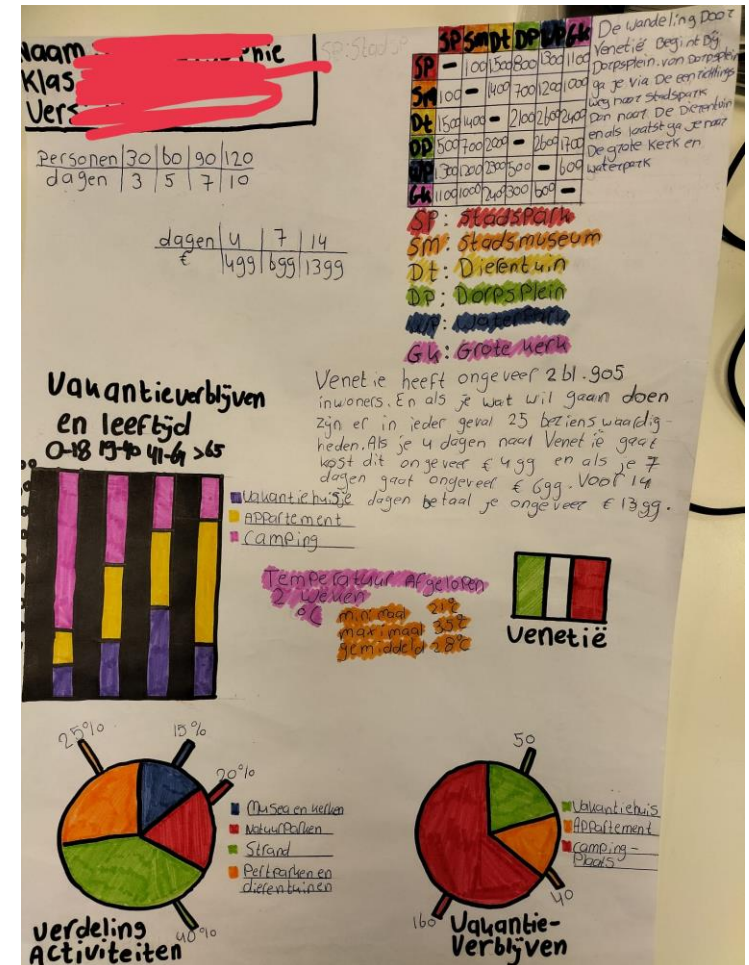 Naam
Klas
SP:Stadsp
Personen 30 60 90 120
dagen 3 5 7 10
dagen 4 7 14
€ 499 699 1399
SP Sm Dt DP WP Gk
SP - 100 1500 800 1300 1100
Sm 100 - 1400 700 1200 1000
Dt 1500 1400 - 2100 2600 2400
DP 500 700 2000 - 2600 1700
WP 1300 1200 2300 500 - 600
Gk 1100 1000 2400 300 600 -
De wandeling Door
Venetië Begint Bij
Dorpsplein. van Dorpsplein
ga je via De eenrichtings
weg naar Stadspark
Dan naar De Dierentuin
en als laatst ga je naar
De grote Kerk en
waterpark
SP: StadsPark
Sm: Stadsmuseum
Dt: Dierentuin
DP: DorpsPlein
WP: WaterPark
Gk: Grote kerk
Venetie heeft ongeveer 261.905
inwoners. En als je wat wil gaan doen
zijn er in ieder geval 25 beziens waardig-
heden. Als je 4 dagen naar Venetië gaat
kost dit ongeveer € 499 en als je 7
dagen gaat ongeveer € 699. Voor 14
dagen betaal je ongeveer € 1399.
Vakantieverblijven
en leeftijd
0-18 19-40 41-64 >65
Vakantiehuisje
APPartement
Camping
Temperatuur Afgelopen
2 weken
°C
minimaal 21°C
maximaal 35°C
gemiddeld 28°C
Venetië
25%
15%
20%
40%
Musea en kerken
Natuurparken
Strand
Pertparken en
dierentuinen
verdeling
Activiteiten
50
40
160
Vakantiehuis
APPartement
Camping-
Plaats
Vakantie-
Verblijven